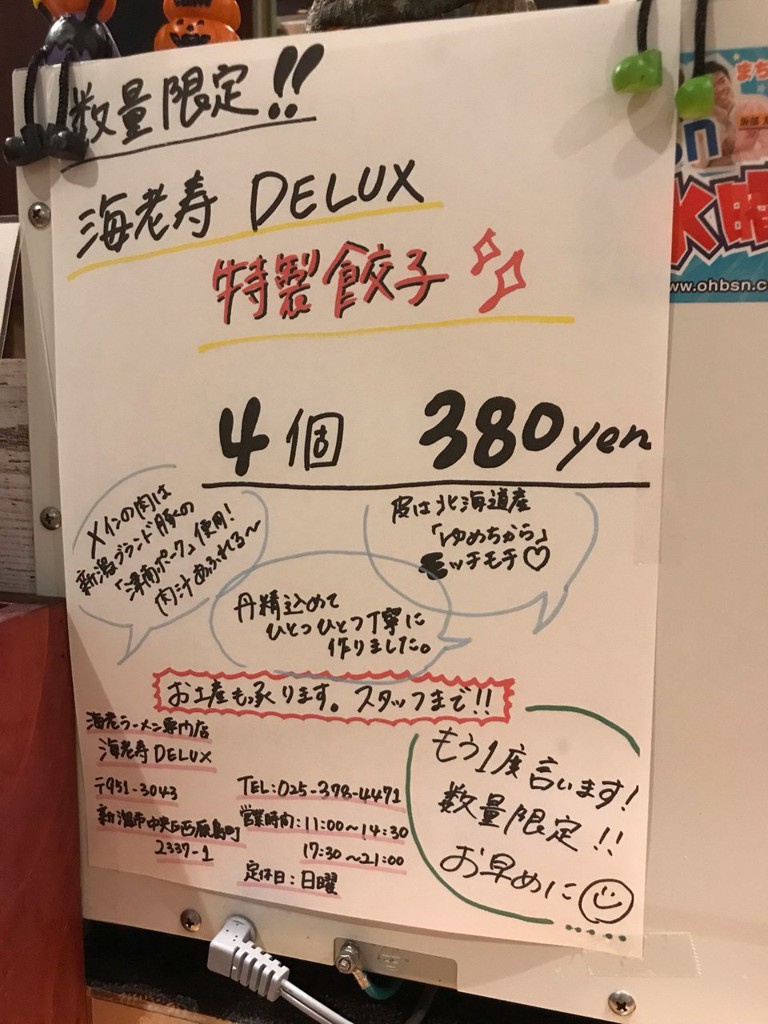 数量限定!!
海老寿 DELUX
特製餃子
4個 380yen
メインの肉は
新潟ブランド豚の
「津南ポーク」使用!
肉汁あふれる〜
皮は北海道産
「ゆめちから」
モッチモチ♡
丹精込めて
ひとつひとつ丁寧に
作りました。
お土産も承ります。スタッフまで!!
海老ラーメン専門店
海老寿 DELUX
〒951-3043
新潟市中央区西厩島町
2337-1
TEL:025-378-4471
営業時間:11:00〜14:30
17:30〜21:00
定休日:日曜
もう1度言います!
数量限定!!
お早めに
まち
水曜
www.ohbsn.c